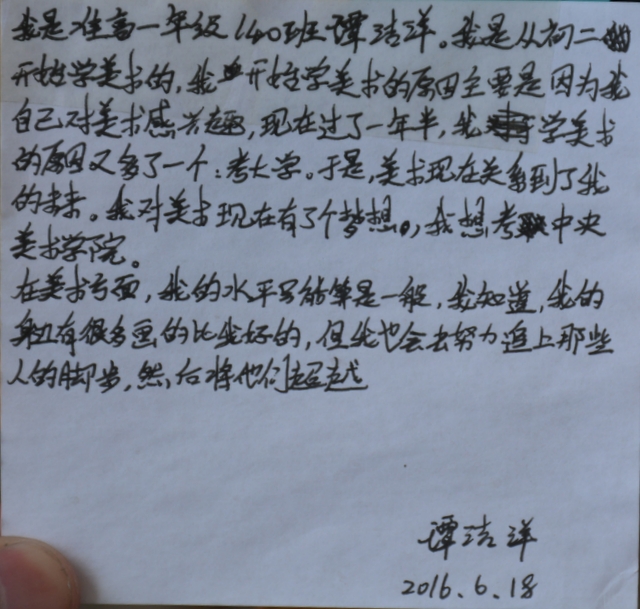 我是准高一年级140班谭洁洋。我是从初二
开始学美术的,我开始学美术的原因主要是因为我
自己对美术感兴趣,现在过了一年半,我学美术
的原因又多了一个:考大学。于是,美术现在关系到了我
的未来。我对美术现在有了个梦想,我想考中央
美术学院。
在美术方面,我的水平只能算是一般,我知道,我的
身边有很多画的比我好的,但我也会去努力追上那些
人的脚步,然后将他们超越
谭洁洋
2016.6.18